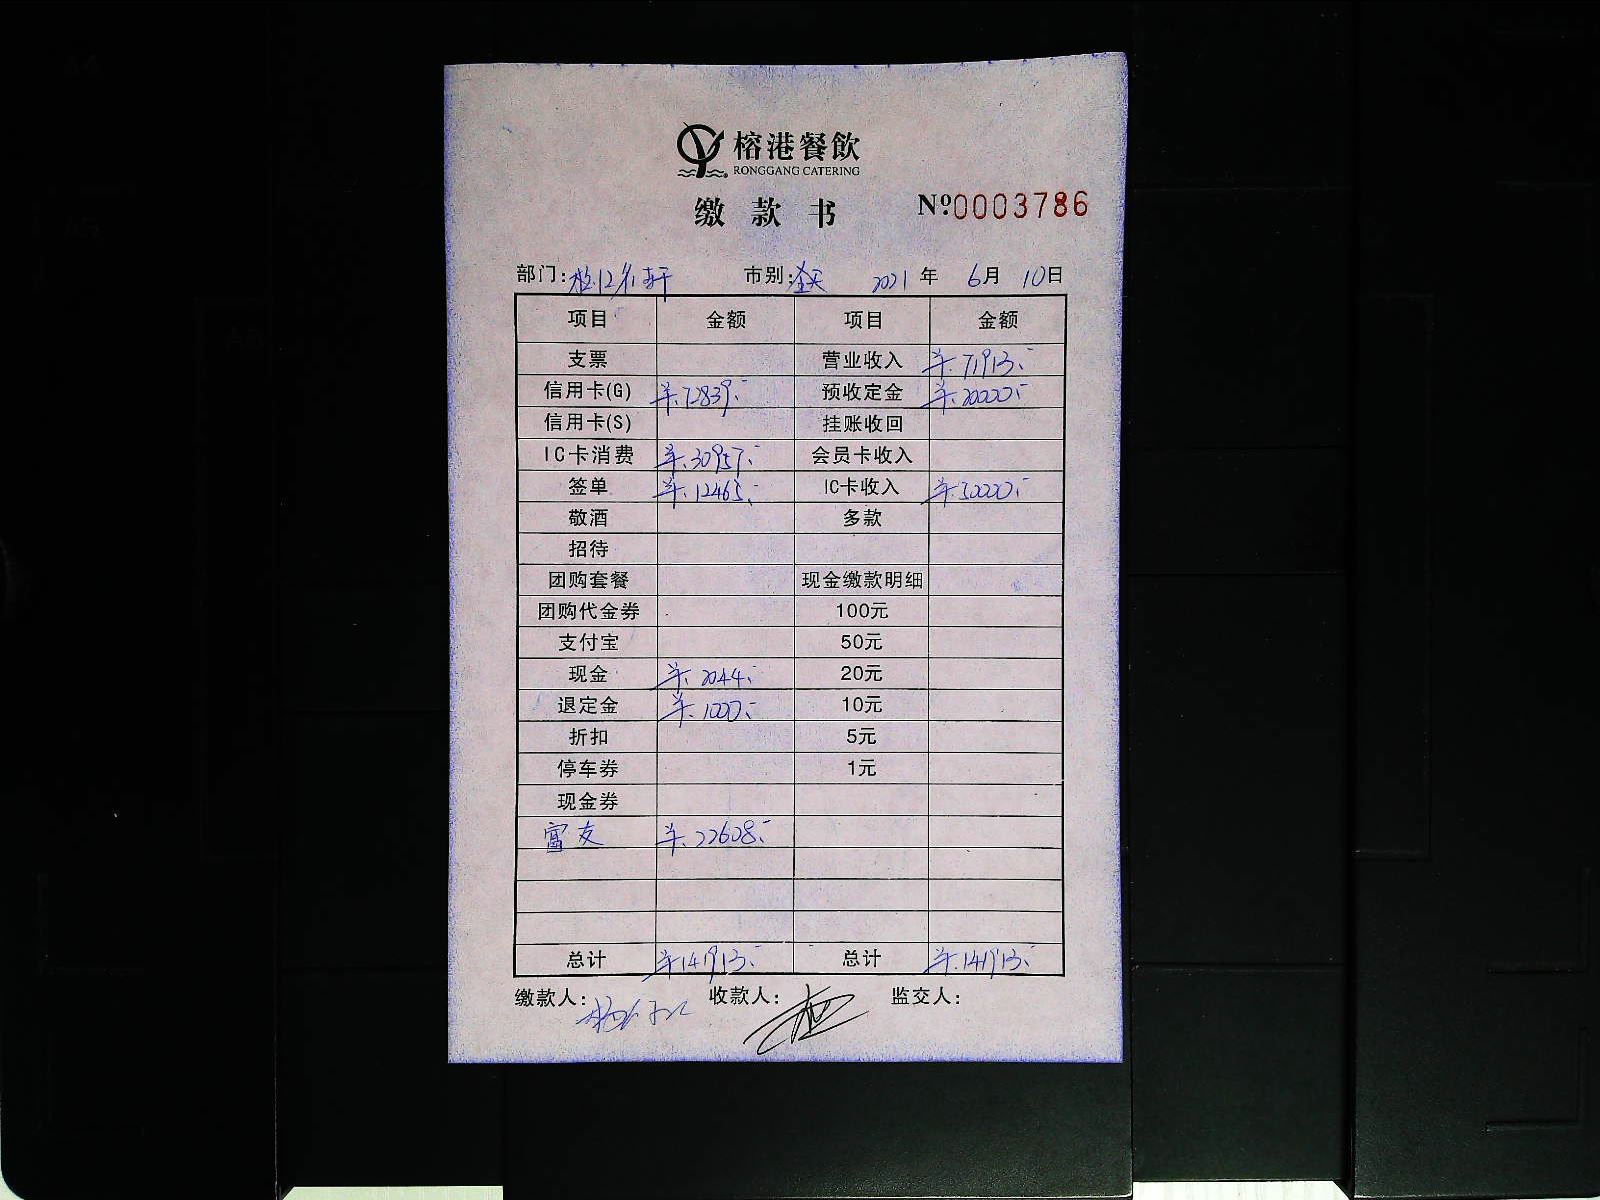 榕港餐飲
RONGGANG CATERING
缴款书 Nº0003786
部门: 市别:全天 2021年 6月 10日
项目 金额 项目 金额
支票 营业收入 ¥.71913.-
信用卡(G) ¥.72839.- 预收定金 ¥.20000.-
信用卡(S) 挂账收回
IC卡消费 ¥.30957.- 会员卡收入
签单 ¥.12465.- IC卡收入 ¥.50000.-
敬酒 多款
招待
团购套餐 现金缴款明细
团购代金券 100元
支付宝 50元
现金 ¥.2044.- 20元
退定金 ¥.1000.- 10元
折扣 5元
停车券 1元
现金券
富友 ¥.22608.-
总计 ¥.141913.- 总计 ¥.141913.-
缴款人: 收款人: 监交人: